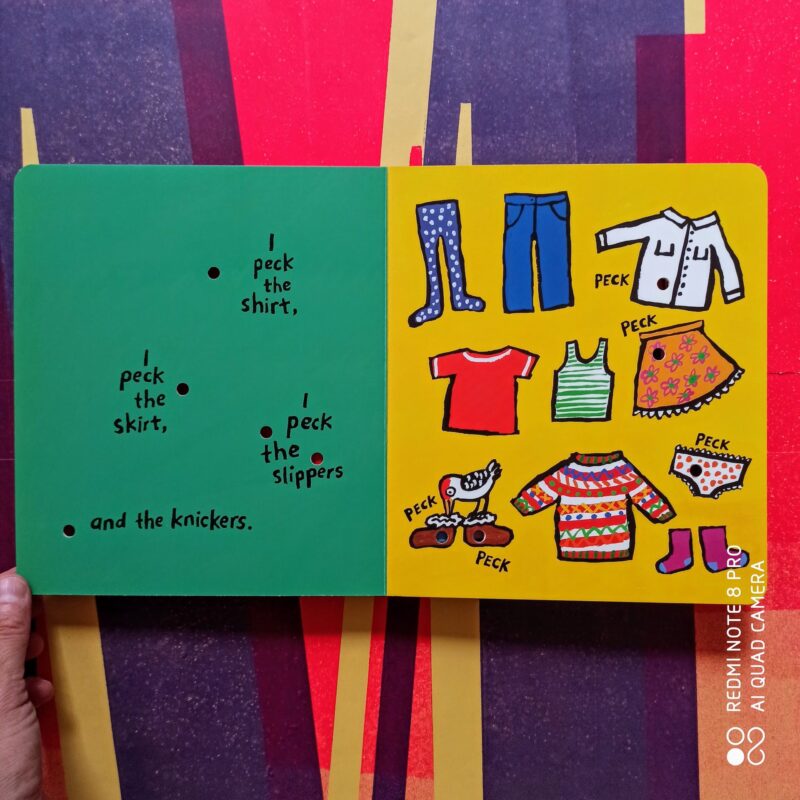 I
peck
the
shirt,
I
peck
the
skirt,
I
peck
the
slippers
and the knickers.
PECK
PECK
PECK
PECK
PECK
REDMI NOTE 8 PRO
AI QUAD CAMERA